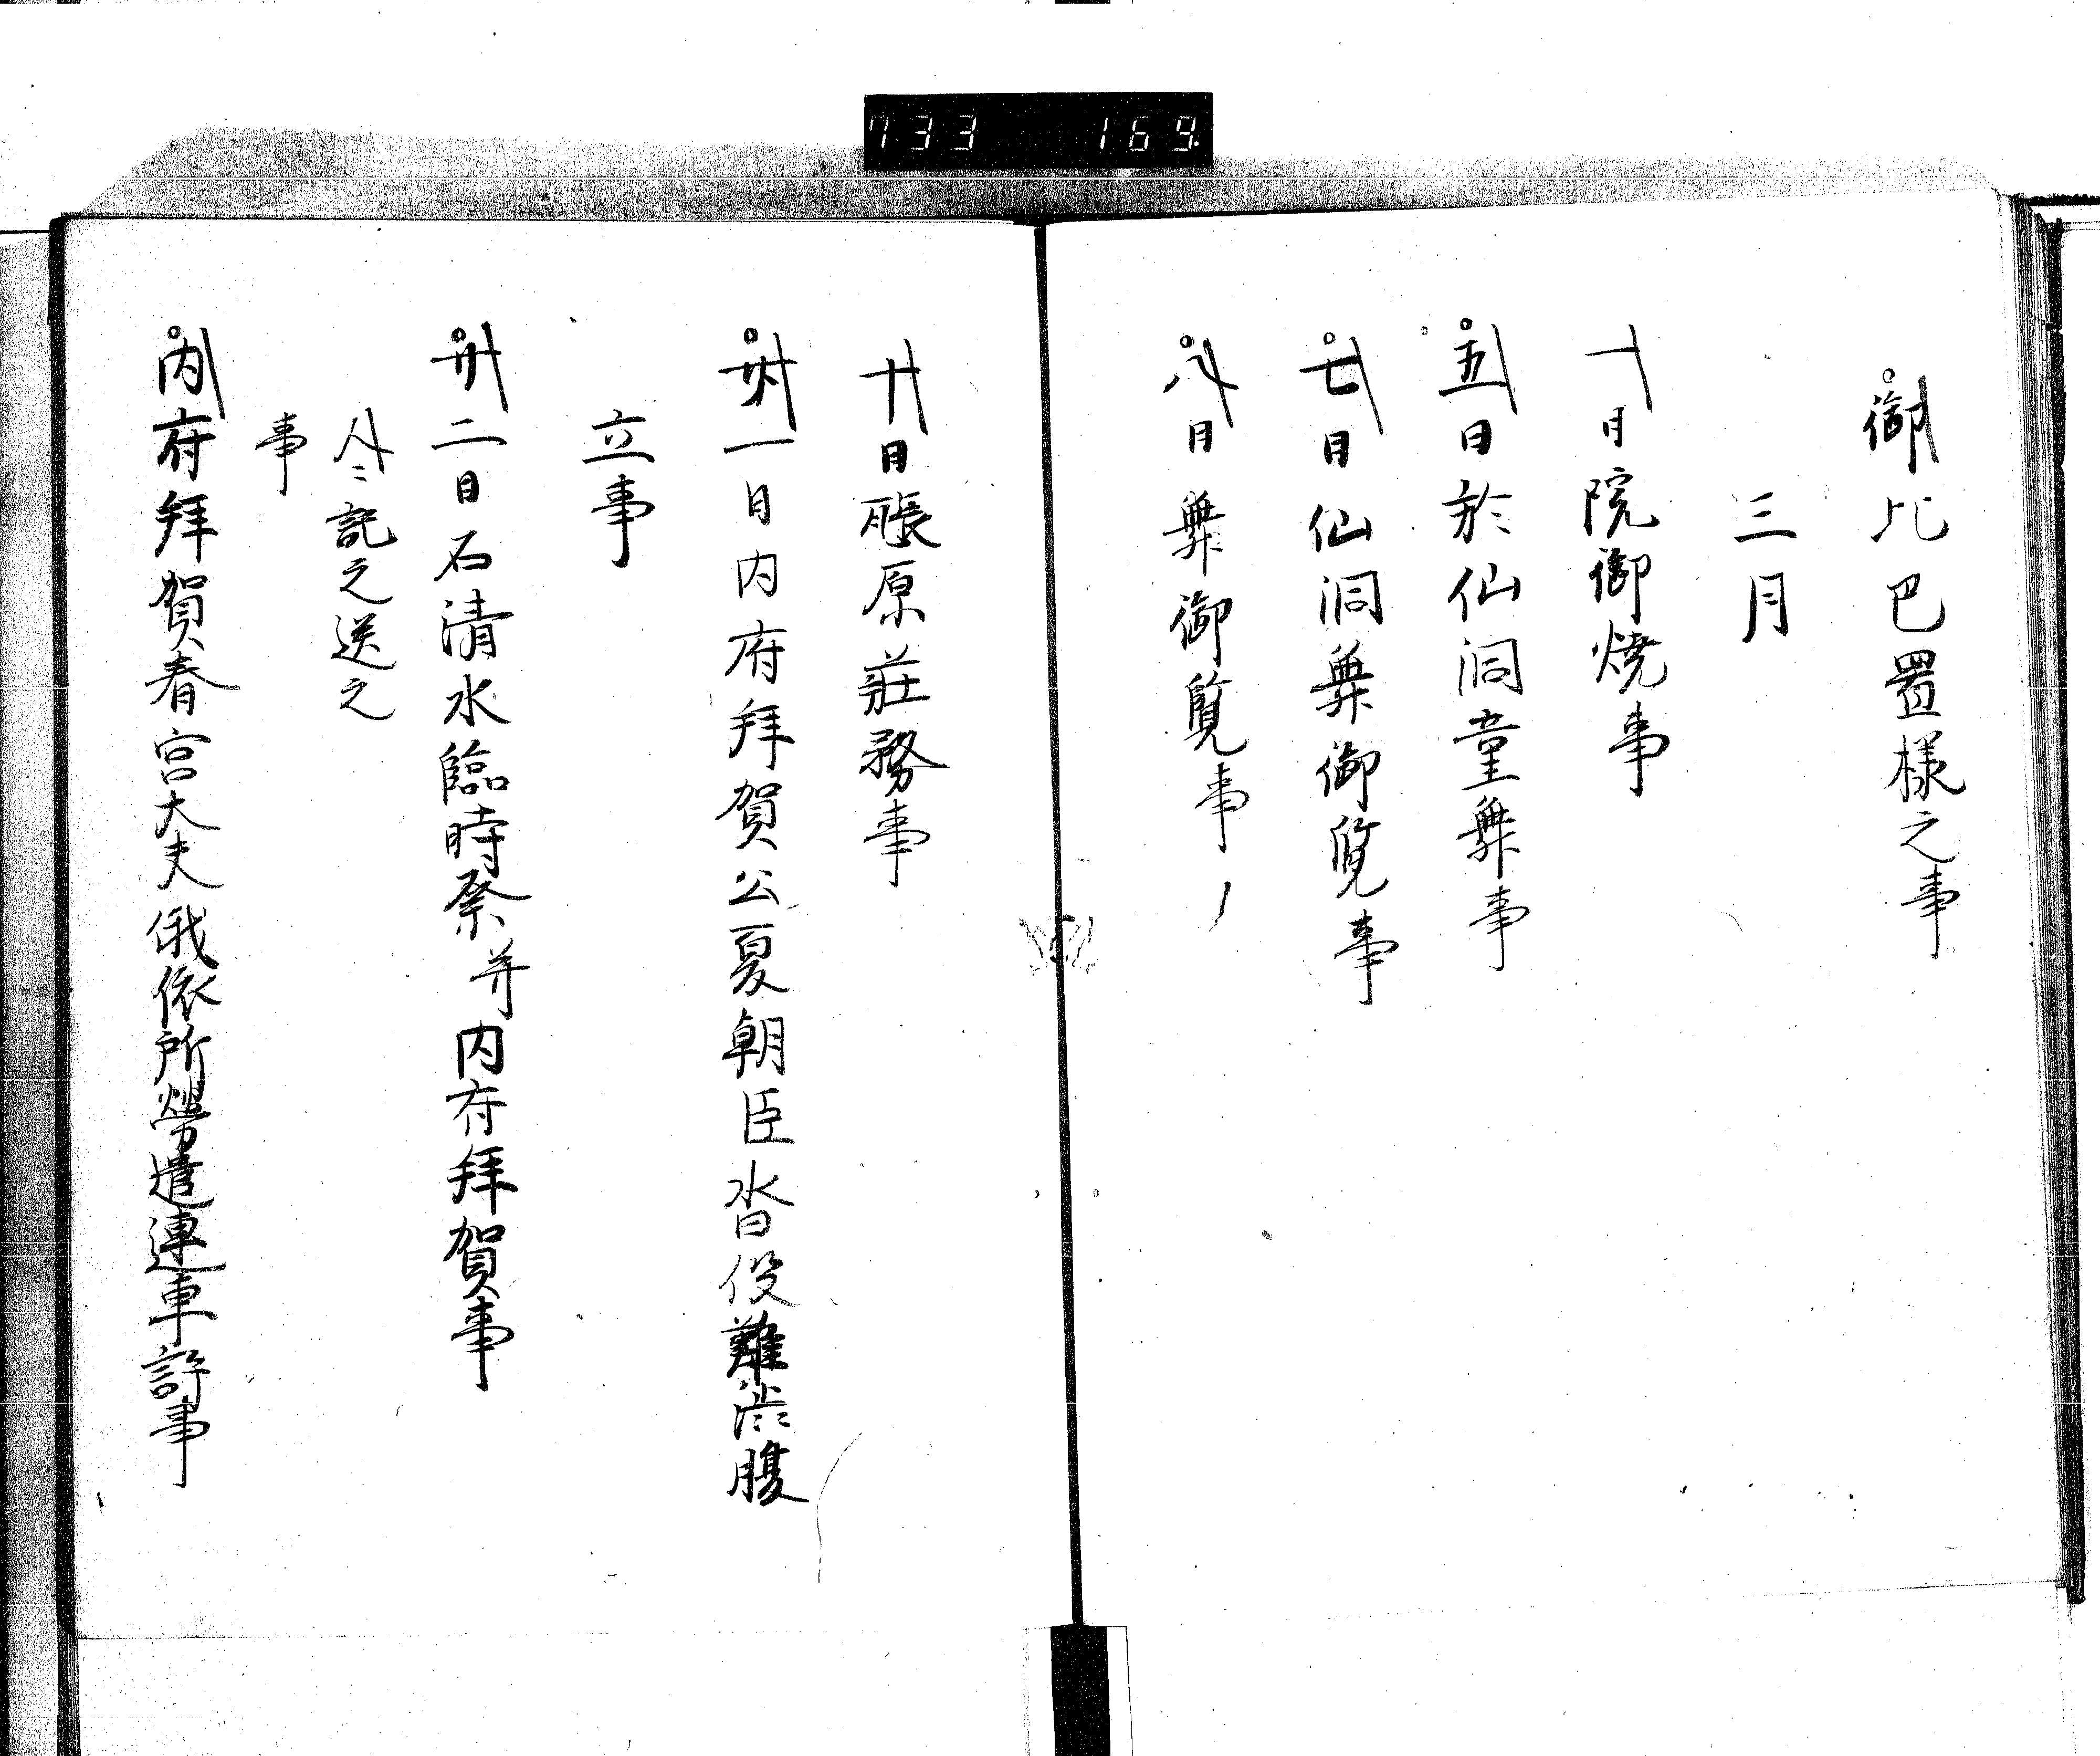 733 169
御比巴置様之事
三月
一日院御焼事
五日於仙洞童舞事
七日仙洞舞御覧事
八日舞御覧事
廿日張原莊務事
廿一日内府拜賀公夏朝臣沓役難渋腹
立事
廿二日石清水臨時祭并内府拜賀事
記之送之
事
内府拜賀春宮大夫俄依所勞遣連車許事